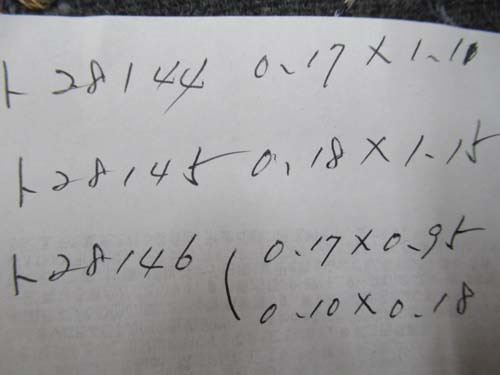 ト28144 0.17×1.10
ト28145 0.18×1.15
ト28146 ( 0.17×0.95
0.10×0.18